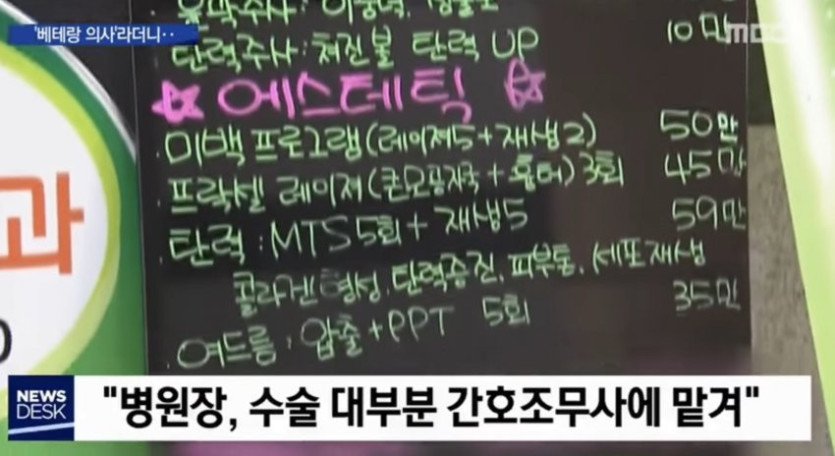 '베테랑 의사'라더니‥
MBC
탄력주사: 쳐진볼 탄력 UP 10만
☆에스테틱☆
미백 프로그램(레이저5+재생2) 50만
프락셀 레이저(큰모공자국+흉터) 3회 45만
탄력: MTS 5회+재생5 59만
콜라겐형성, 탄력증진, 피부톤, 세포재생
여드름: 압출+PPT 5회 35만
과
NEWS
DESK
"병원장, 수술 대부분 간호조무사에 맡겨"